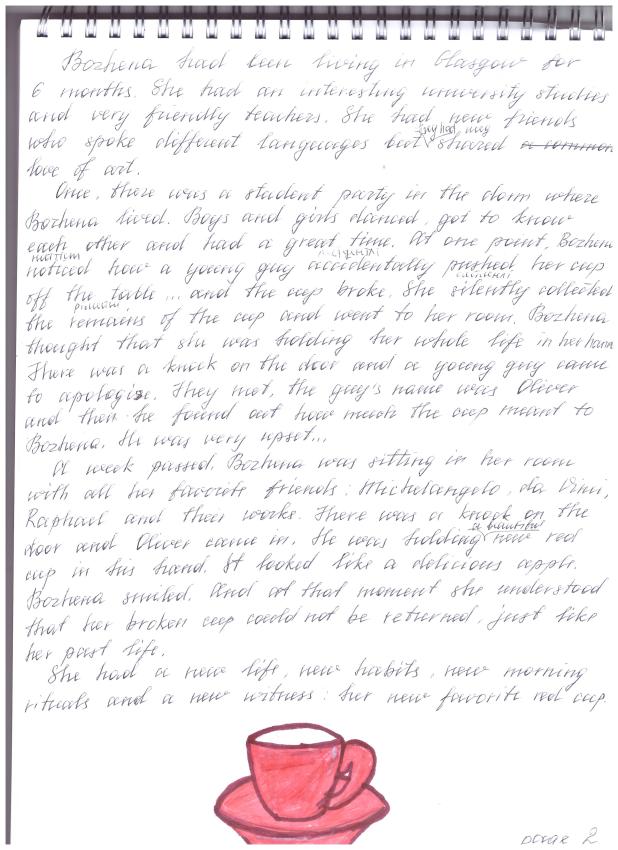 Bozhena had been living in Glasgow for
6 months. She had an interesting university studies
and very friendly teachers. She had new friends
who spoke different languages but they had shared a common
love of art.
Once, there was a student party in the dorm where
Bozhena lived. Boys and girls danced, got to know
each other and had a great time. At one point, Bozhena
noticed how a young guy accidentally pushed her cup
off the table... and the cup broke. She silently collected
the remains of the cup and went to her room. Bozhena
thought that she was holding her whole life in her hand
There was a knock on the door and a young guy came
to apologise. They met, the guy's name was Oliver
and then he found out how much the cup meant to
Bozhena. He was very upset...
A week passed. Bozhena was sitting in her room
with all her favorite friends: Michelangelo, da Vinci,
Raphael and their works. There was a knock on the
door and Oliver came in. He was holding a beautiful new red
cup in his hand. It looked like a delicious apple.
Bozhena smiled. And at that moment she understood
that her broken cup could not be returned, just like
her past life.
She had a new life, new habits, new morning
rituals and a new witness: her new favorite red cup.
2